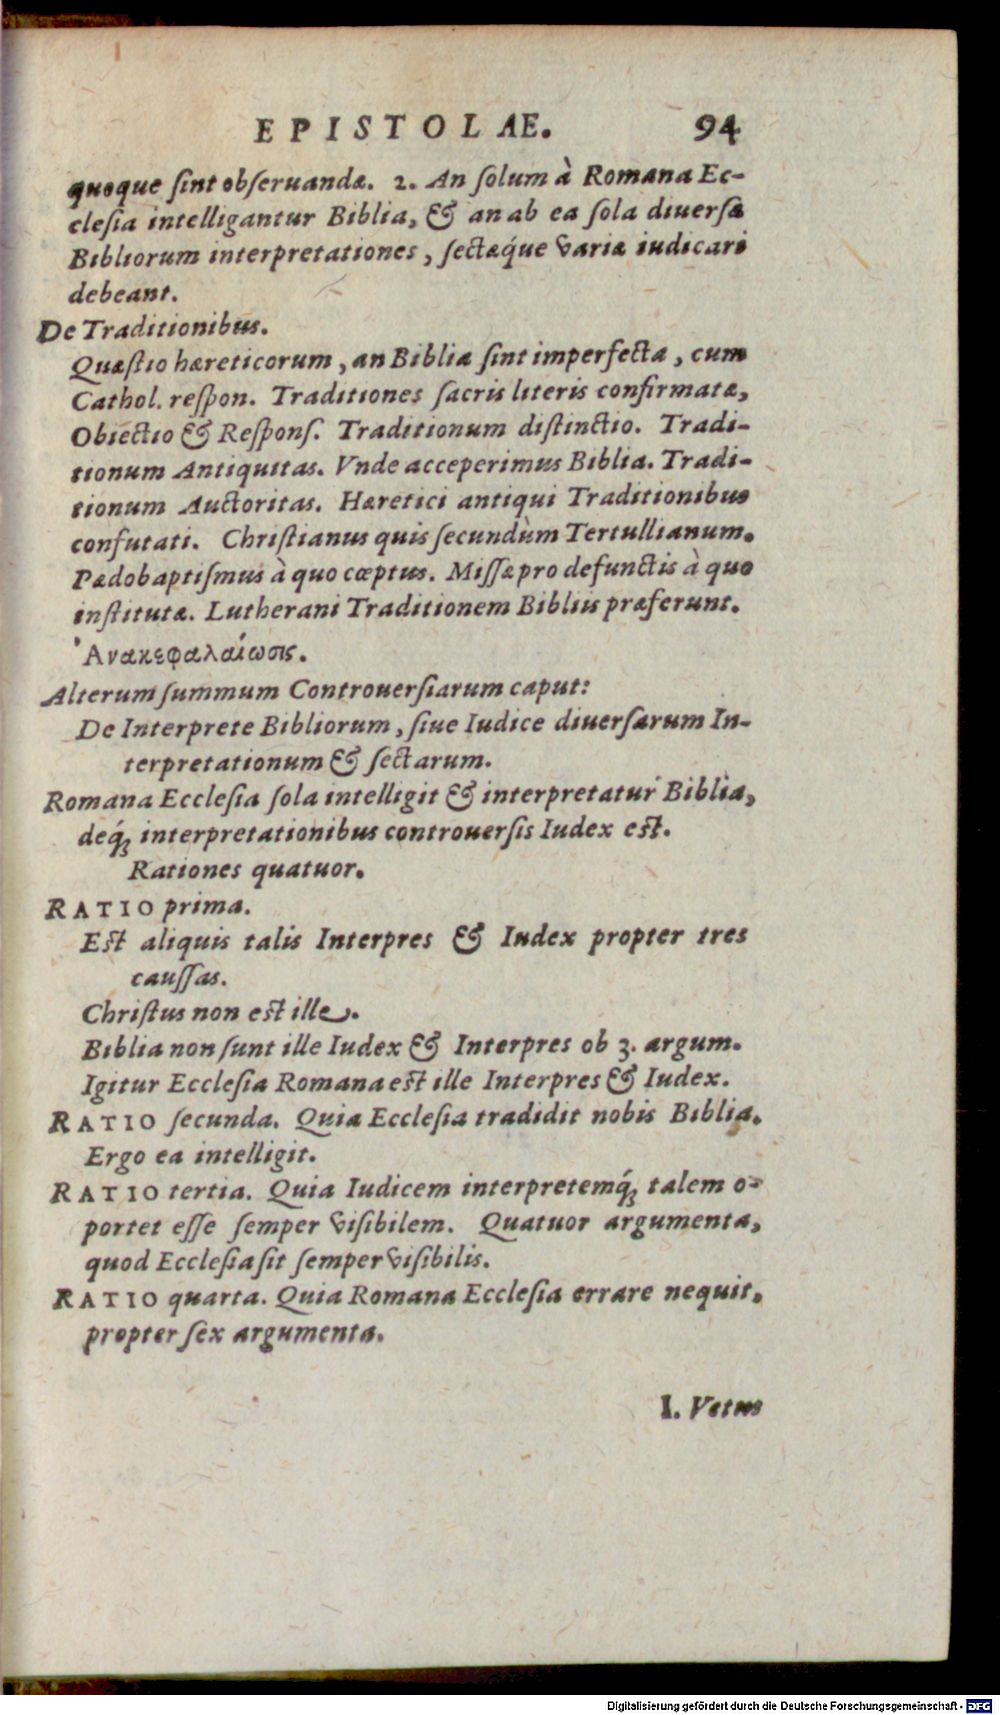 EPISTOLAE. 94
quoque ſint obſeruandæ. 2. An ſolum à Romana Ec-
cleſia intelligantur Biblia, & an ab ea ſola diuerſæ
Bibliorum interpretationes, ſectæq́ue variæ iudicari
debeant.
De Traditionibus.
Quæſtio hæreticorum, an Biblia ſint imperfecta, cum
Cathol. reſpon. Traditiones ſacris literis confirmatæ,
Obiectio & Reſponſ. Traditionum diſtinctio. Tradi-
tionum Antiquitas. Vnde acceperimus Biblia. Tradi-
tionum Auctoritas. Hæretici antiqui Traditionibus
confutati. Chriſtianus quis ſecundùm Tertullianum.
Pædobaptiſmus à quo cœptus. Miſſæ pro defunctis à quo
inſtitutæ. Lutherani Traditionem Bibliis præferunt.
Ἀνακεφαλαίωσις.
Alterum ſummum Controuerſiarum caput:
De Interprete Bibliorum, ſiue Iudice diuerſarum In-
terpretationum & ſectarum.
Romana Eccleſia ſola intelligit & interpretatur Biblia,
deq́ꝫ interpretationibus controuerſis Iudex eſt.
Rationes quatuor.
RATIO prima.
Eſt aliquis talis Interpres & Iudex propter tres
cauſſas.
Chriſtus non eſt ille.
Biblia non ſunt ille Iudex & Interpres ob 3. argum.
Igitur Eccleſia Romana eſt ille Interpres & Iudex.
RATIO ſecunda. Quia Eccleſia tradidit nobis Biblia.
Ergo ea intelligit.
RATIO tertia. Quia Iudicem interpretemq́ꝫ talem o-
portet eſſe ſemper viſibilem. Quatuor argumenta,
quod Eccleſia ſit ſemper viſibilis.
RATIO quarta. Quia Romana Eccleſia errare nequit,
propter ſex argumenta.
I. Vetus
Digitalisierung gefördert durch die Deutsche Forschungsgemeinschaft - DFG